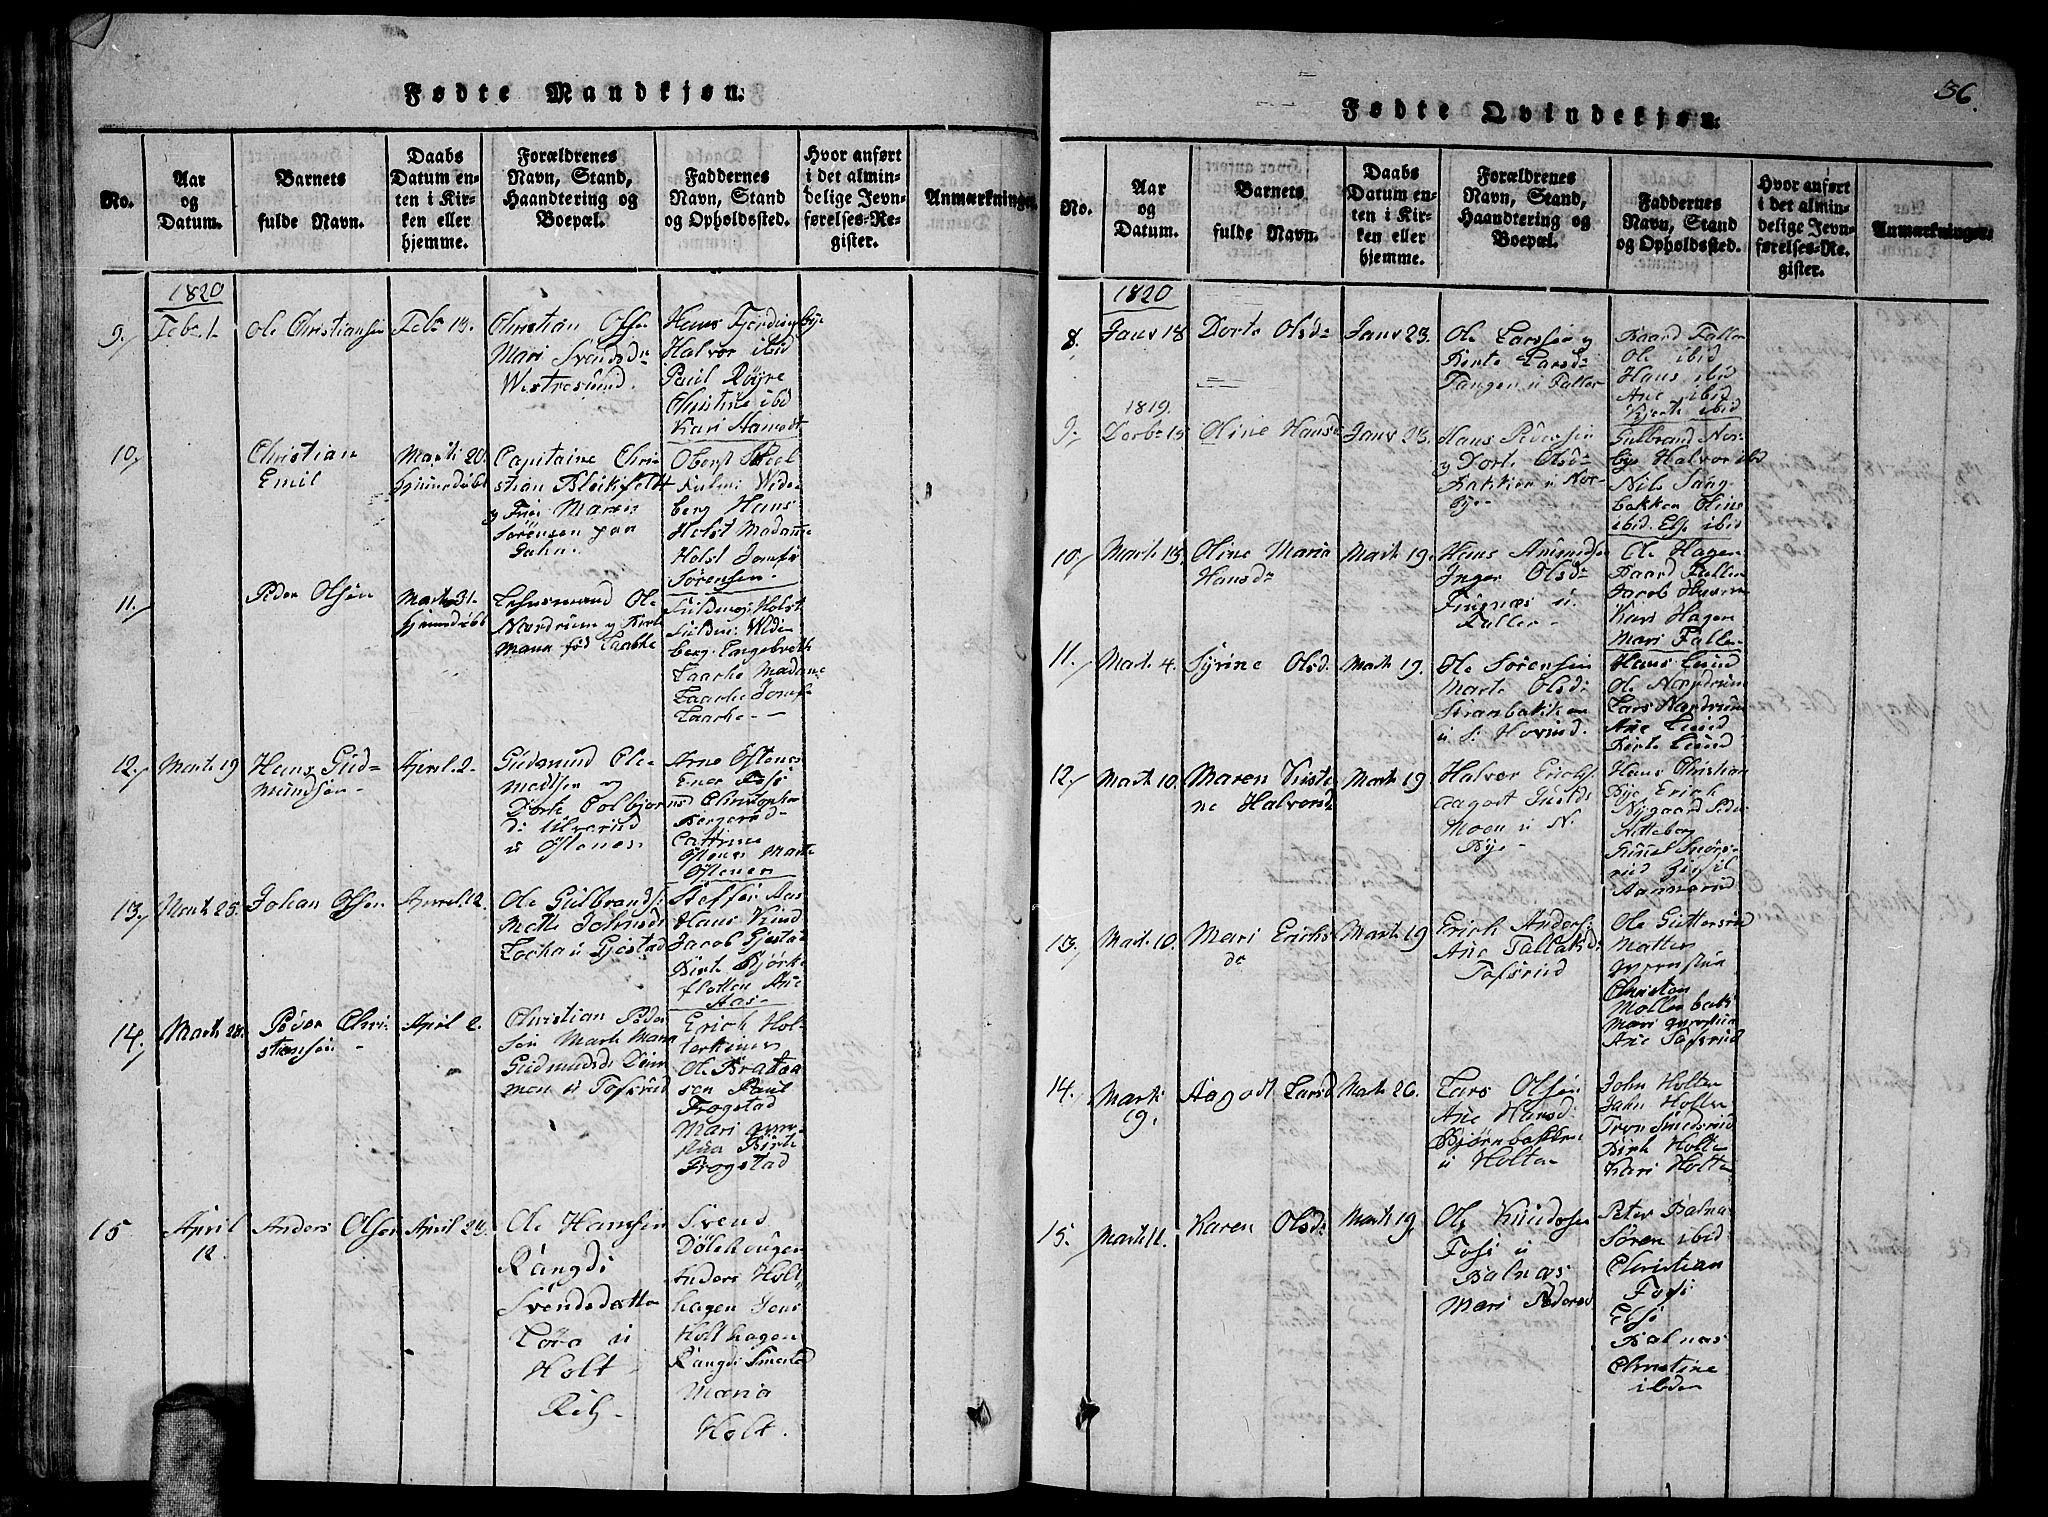 Fødte Mandkjøn.
No.
Aar
og
Datum.
Barnets
fulde Navn.
Daabs
Datum en-
ten i Kir-
ken eller
hjemme.
Forældrenes
Navn, Stand,
Haandtering og
Boepæl.
Faddernes
Navn, Stand
og Opholdssted.
Hvor anført
i det almin-
delige Jevn-
førelses-Re-
gister.
Anmærkninger.
1820
9.
Febr. 1.
Ole Christiansen
Febr 13.
Christian Olsen
Mari Svendsdr
Westresund.
Hans Fjerdingbye
Halvor ibid
Paul Røyre
Christine ibid
Kari Aamodt
10.
Christian
Emil
Marti 20.
hjemedøbt
Capitaine Chri-
stian Bleikfeldt
og Frue Maren
Sørensen paa
Oberst
Wide-
berg Hans
Holst Madame
Holst Jomfr
Sørensen.
11.
Peder Olsen
Marti 31.
hjemedøbt
Lehnsmand Ole
Nærdrum og Kone
Maria fød Taabke
Holst
Wide-
berg. Engebreth
Madame
Jomfr
12.
Marti 19
Hans Gud-
mundsen
April 2.
Gudmund Cle-
metsen og
Dorte Colbjørns
d: Ulverud
u Østenes
Arne Østenes
Ener
Christopher
Bergerød
Cathrine
Østenes Marte
Østenes
13.
Marti 25.
Johan Olsen
April 2.
Ole Gulbrands:
Mette Johnsd:
u Gjestad
Steffen Aas
Hans Lund
Jacob Gjestad
Birte Bjørke-
flotten Ane
Aas
14.
Marti 28.
Peder Chri-
stiansen
April 2.
Christian Peder-
sen Marte Maria
Gudmundsd:
u Tofsrud
Erich Hol-
Ole Brataa-
sen Paul
Frogstad
Mari
Birte
Frogstad
15
April
12.
Anders Olsen
April 23.
Ole Hansen
Rangdi
Svendsdatter
u
Holt
Svend
Dølehaugen
Anders Holt-
hagen Jens
Holthagen
Rangdi
Maria
Holt.
36.
Fødte Qvindekjøn.
No.
Aar
og
Datum.
Barnets
fulde Navn.
Daabs
Datum en-
ten i Kir-
ken eller
hjemme.
Forældrenes
Navn, Stand,
Haandtering og
Boepæl.
Faddernes
Navn, Stand
og Opholdssted.
Hvor anført
i det almin-
delige Jevn-
førelses-Re-
gister.
Anmærkninger.
1820
8.
Janv 18
Dorte Olsdr
Janv 23.
Ole Larsen og
Berte Larsdr
Tangen u Faller
Baard Faller
Ole ibid
Hans ibid
Ane ibid
ibid
1819.
9.
Decbr 15
Oline Hansd
Janv 23.
Hans Iversen
og Dorte Olsdr
Bakken u Nor-
bye
Gulbrand Nor-
bye Halvor ibid
Nils Sang-
bakken Oline
ibid. Else ibid
10.
Marti 13.
Oline Maria
Hansdr
Marti 19.
Hans Amundsen
Inger Olsdr
Tingnæs u.
Faller
Ole Hagen
Baard Faller
Jacob
Kari Hagen
Mari Faller
11.
Marti 4.
Syrine Olsd:
Marti 19.
Ole Sørensen
Marte Olsd:
Stranbakken
u S: Hovind.
Hans Lund
Ole Nærdrum
Lars Nærdrum
Ane Lund
Birte Lund
12.
Marti 10.
Maren Kirsti-
ne Halvorsd
Marti 19.
Halvor Erichs:
Aagodt
Moen u N.
Bye
Hans Christian
Bye Erich
Nygaard Peder
Nitteberg
Gunel
13.
Marti 10.
Mari Erichs
dr
Marti 19
Erich Anders:
Ane
Tofsrud
Ole Guttersrud
Christian
Møllerbak:
Mari
Ane Tofsrud
14.
Marti
19.
Aagodt Larsd
Marti 26.
Lars Olsen
Ane Hansd:
Bjørnbakken
u Holter
John Holter
John Holter
Smedsrud
Birte Holter
Kari Holter
15.
Marti 11.
Karen Olsdr
Marti 19.
Ole Knudsen
Fossi u
Balnæs
Mari Pedersd
Peter Balnæs
Søren ibid
Christian
Fossi
Else
Balnæs
Christine
ibid